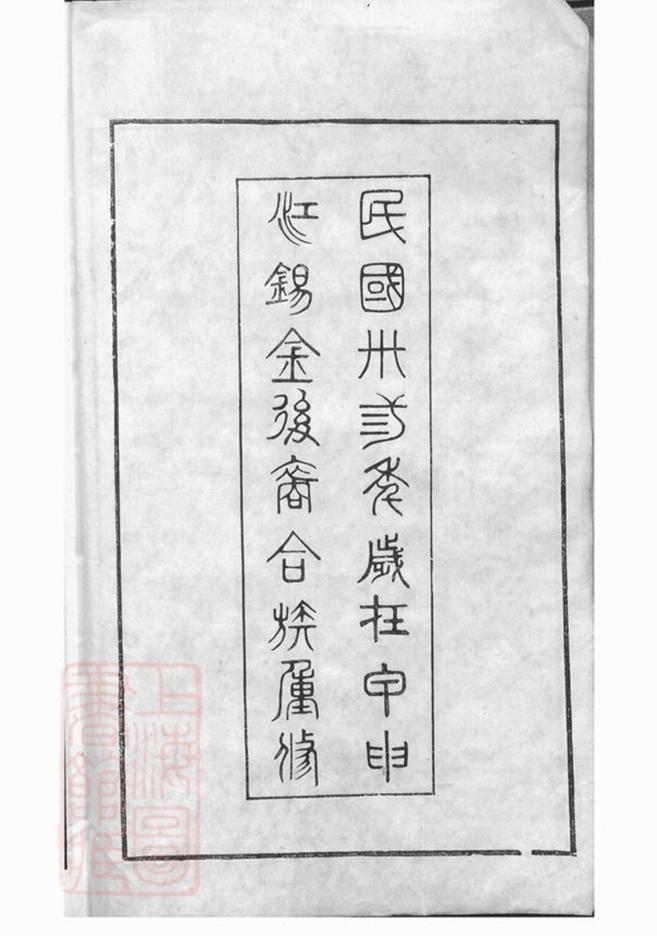 民國卅弎秊歲在甲申
江錫金後裔合族重修
上海圖
書館藏